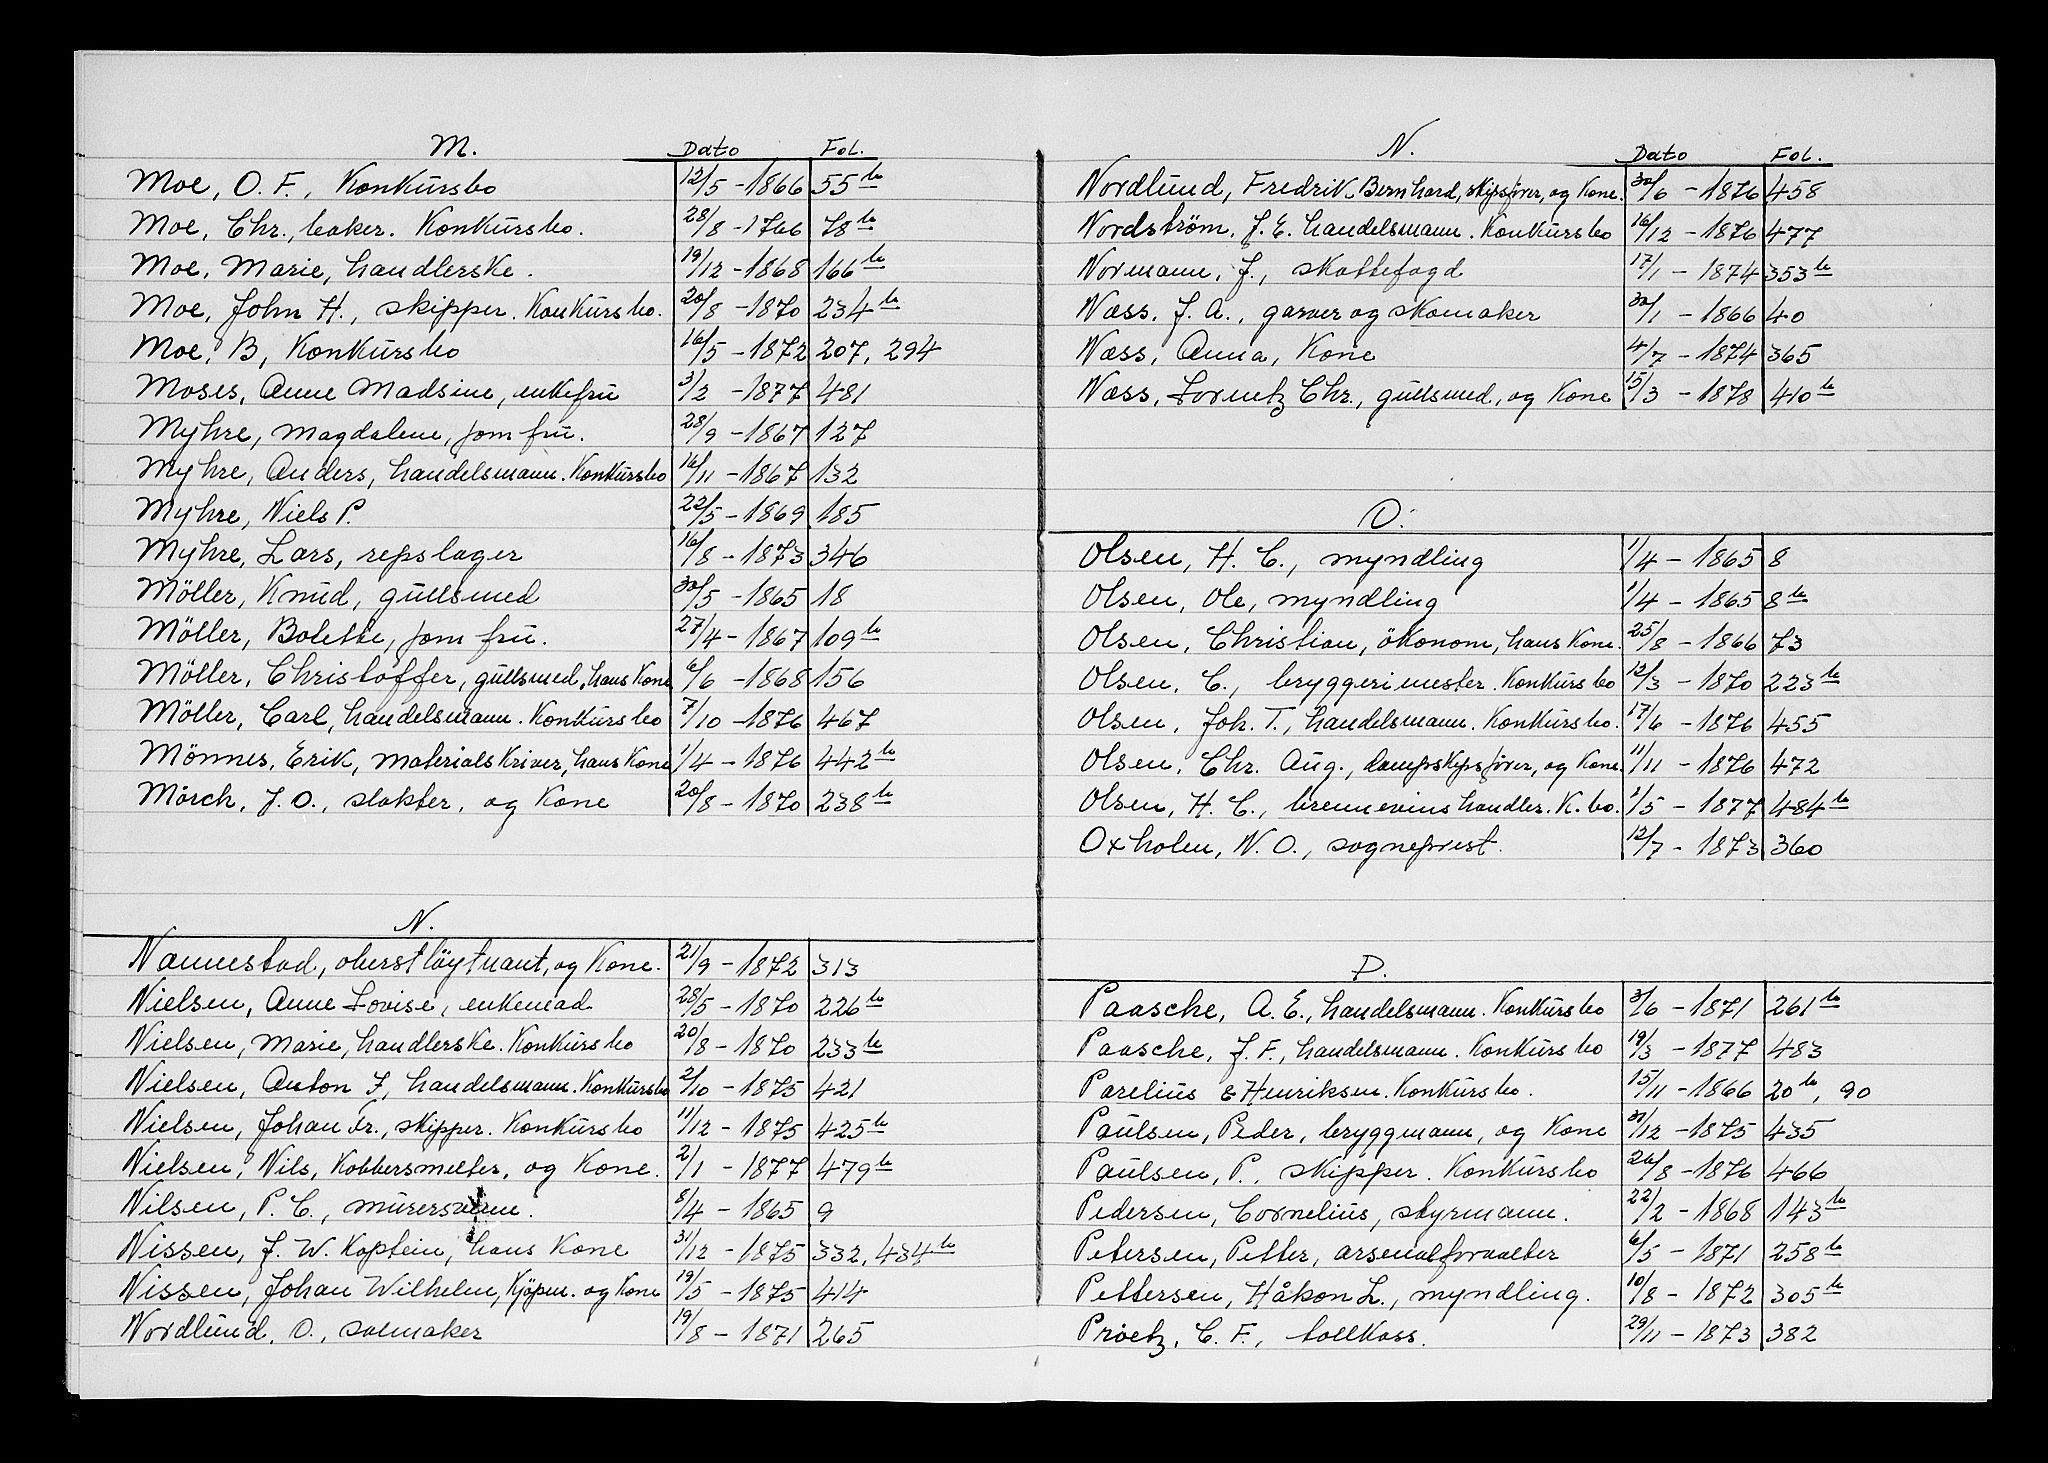 M. Dato Fol.
Moe, O. F., Konkursbo 12/5 - 1866 55 b
Moe, Chr., baker. Konkursbo. 28/8 - 1766 78 b
Moe, Marie, handlerske. 19/12 - 1868 166 b
Moe, John H., skipper. Konkursbo. 20/8 - 1870 234 b
Moe, B, Konkursbo 16/5 - 1872 207, 294
Moses, Anne Madsine, enkefru 3/2 - 1877 481
Myhre, Magdalene, jomfru. 28/9 - 1867 127
Myhre, Anders, handelsmann. Konkursbo 16/11 - 1867 132
Myhre, Niels P. 22/5 - 1869 185
Myhre, Lars, repslager 16/8 - 1873 346
Möller, Knud, gullsmed 30/5 - 1865 18
Möller, Bolette, jomfru. 27/4 - 1867 109 b
Möller, Christoffer, gullsmed, hans Kone 6/6 - 1868 156
Möller, Carl, handelsmann. Konkursbo 7/10 - 1876 467
Mönnes, Erik, materialskriver, hans Kone 1/4 - 1876 442 b
Mörch, J. O., slakter, og Kone 20/8 - 1870 238 b
N.
Nannestad, oberstlöytnant, og Kone. 21/9 - 1872 313
Nielsen, Anne Lovise, enkemad 28/5 - 1870 226 b
Nielsen, Marie, handlerske. Konkursbo 20/8 - 1870 233 b
Nielsen, Anton J, handelsmann. Konkursbo 2/10 - 1875 421
Nielsen, Johan Fr., skipper. Konkursbo 11/12 - 1875 425 b
Nielsen, Nils, Kobbersmelter, og Kone. 2/1 - 1877 479 b
Nilsen, P. C., murersvenn. 8/4 - 1865 9
Nissen, J. W. Kaptein, hans Kone 31/12 - 1875 332, 434 b
Nissen, Johan Wilhelm, Kjöpm. og Kone 19/5 - 1875 414
Nordlund, O., salmaker 19/8 - 1871 265
N. Dato Fol.
Nordlund, Fredrik Bernhard, skipsförer, og Kone. 30/6 - 1876 458
Nordström, J. E. handelsmann. Konkursbo 16/12 - 1876 477
Normann, J., skattefogd 17/1 - 1874 353 b
Næss, J. A., garver og skomaker 30/1 - 1866 40
Næss, Anna, Kone 4/7 - 1874 365
Næss, Lorentz Chr., gullsmed, og Kone 15/3 - 1878 410 b
O.
Olsen, H. C., myndling 1/4 - 1865 8
Olsen, Ole, myndling 1/4 - 1865 8 b
Olsen, Christian, ökonom, hans Kone. 25/8 - 1866 73
Olsen, C., bryggerimester. Konkursbo 12/3 - 1870 223 b
Olsen, Joh. T., handelsmann. Konkursbo. 17/6 - 1876 455
Olsen, Chr. Aug., dampskipsförer, og Kone. 11/11 - 1876 472
Olsen, H. C., brennevinshandler. K.bo. 1/5 - 1877 484 b
Oxholm, N. O., sogneprest. 12/7 - 1873 360
P.
Paasche, A. E., handelsmann. Konkursbo 3/6 - 1871 261 b
Paasche, J. F., handelsmann. Konkursbo 19/3 - 1877 483
Parelius & Henriksen. Konkursbo. 15/11 - 1866 20 b, 90
Paulsen, Peder, bryggmann, og Kone 31/12 - 1875 435
Paulsen, P., skipper. Konkursbo 26/8 - 1876 466
Pedersen, Cornelius, styrmann. 22/2 - 1868 143 b
Petersen, Petter, arsenalforvalter 6/5 - 1871 258 b
Pettersen, Håkon L., myndling. 10/8 - 1872 305 b
Pröetz, C. F., tollkass. 29/11 - 1873 382